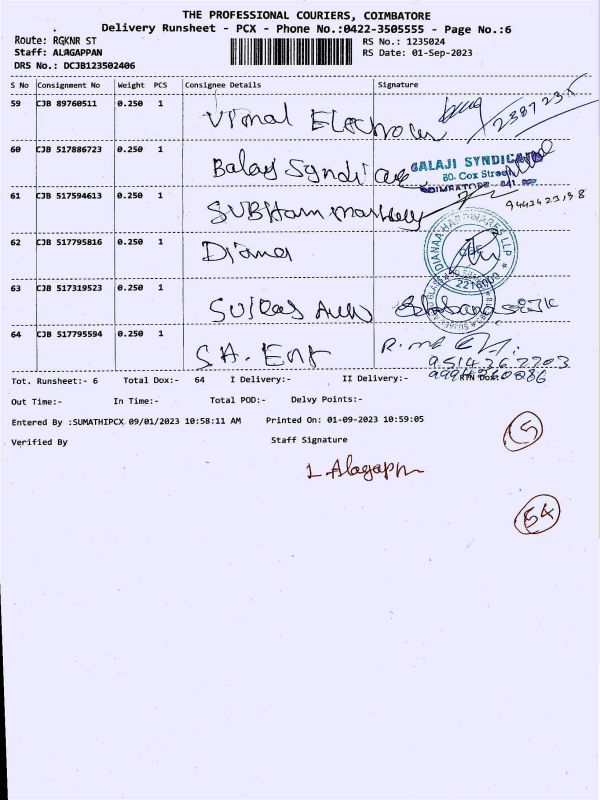 THE PROFESSIONAL COURIERS, COIMBATORE
Delivery Runsheet - PCX - Phone No.:0422-3505555 - Page No.:6
Route: RGKNR ST
RS No.: 1235024
Staff: ALAGAPPAN
RS Date: 01-Sep-2023
DRS No.: DCJB123502406
S No Consignment No Weight PCS Consignee Details Signature
59 CJB 89760511 0.250 1 Vimal
60 CJB 517886723 0.250 1 Balaji Syndicate BALAJI SYNDICATE
80, Cox Street
COIMBATORE
61 CJB 517594613 0.250 1 SUBHam
62 CJB 517795816 0.250 1 Diana DIANAA HARDWARES LLP
63 CJB 517319523 0.250 1
64 CJB 517795594 0.250 1 SA. Ent
Tot. Runsheet:- 6 Total Dox:- 64 I Delivery:- II Delivery:- RTN Dox:-
Out Time:- In Time:- Total POD:- Delvy Points:-
Entered By :SUMATHIPCX 09/01/2023 10:58:11 AM Printed On: 01-09-2023 10:59:05
Verified By Staff Signature
5
L Alagappn
54